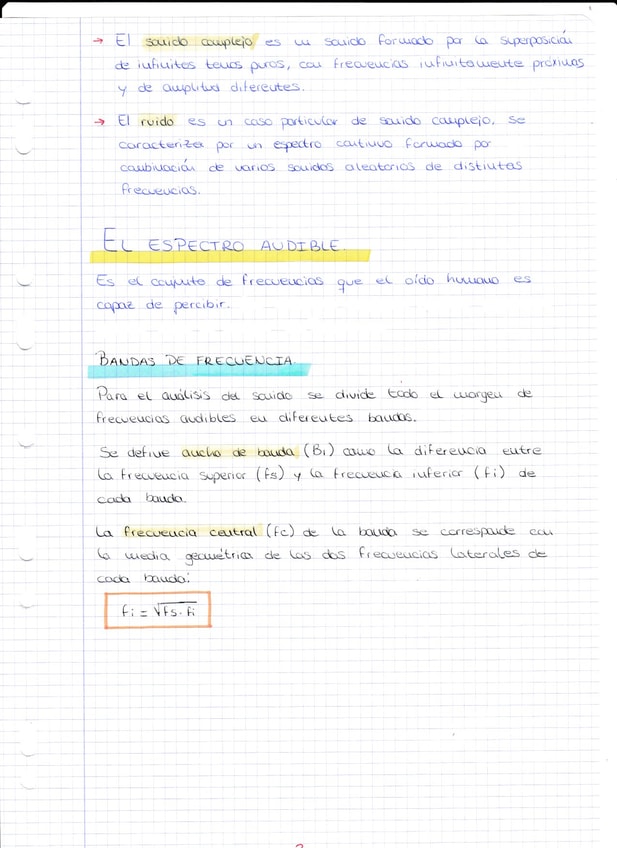 → El sonido complejo es un sonido formado por la superposición
de infinitos tonos puros, con frecuencias infinitamente próximas
y de amplitud diferentes.
→ El ruido es un caso particular de sonido complejo. Se
caracteriza por un espectro continuo formado por
combinación de varios sonidos aleatorios de distintas
frecuencias.
EL ESPECTRO AUDIBLE.
Es el conjunto de frecuencias que el oído humano es
capaz de percibir.
BANDAS DE FRECUENCIA.
Para el análisis del sonido se divide todo el margen de
frecuencias audibles en diferentes bandas.
Se define ancho de banda (Bi) como la diferencia entre
la frecuencia superior (fs) y la frecuencia inferior (fi) de
cada banda.
La frecuencia central (fc) de la banda se corresponde con
la media geométrica de las dos frecuencias laterales de
cada banda:
fi = √fs·fi